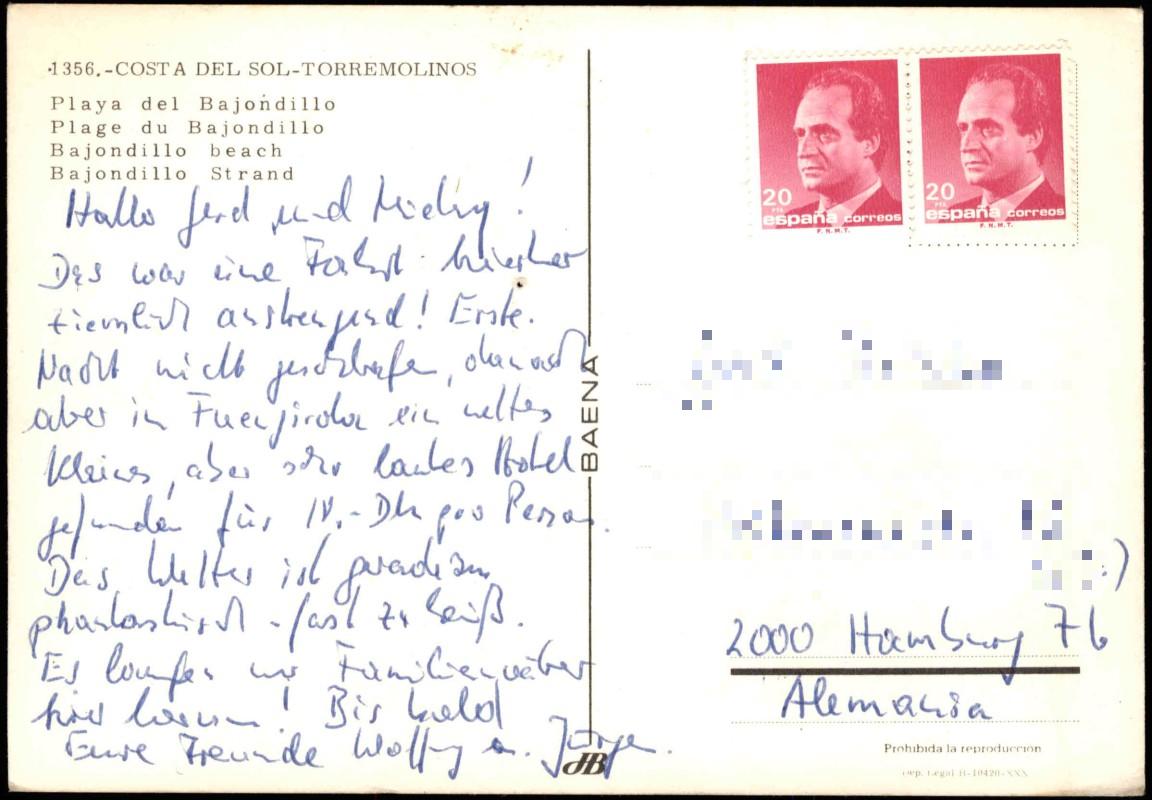 ·1356.-COSTA DEL SOL-TORREMOLINOS
Playa del Bajondillo
Plage du Bajondillo
Bajondillo beach
Bajondillo Strand
Hallo Gerd und !
Das war eine Fahrt hierher
ziemlich anstrengend! Erste.
Nacht nicht geschlafen, danach
aber in Fuengirola ein nettes
kleines, aber sehr lautes Hotel
gefunden für .-DM pro Person.
Das Wetter ist geradezu
phantastisch - fast zu heiß.
Es laufen nur Familienväter
hier herum! Bis bald
Eure Freunde Wolfg u. Jürgen.
BAENA
JB
20
PTA
españa correos
F.N.M.T.
20
PTA
españa correos
F.N.M.T.
:)
2000 Hamburg 76
Alemania
Prohibida la reproducción
Dep. Legal B-10420-XXX